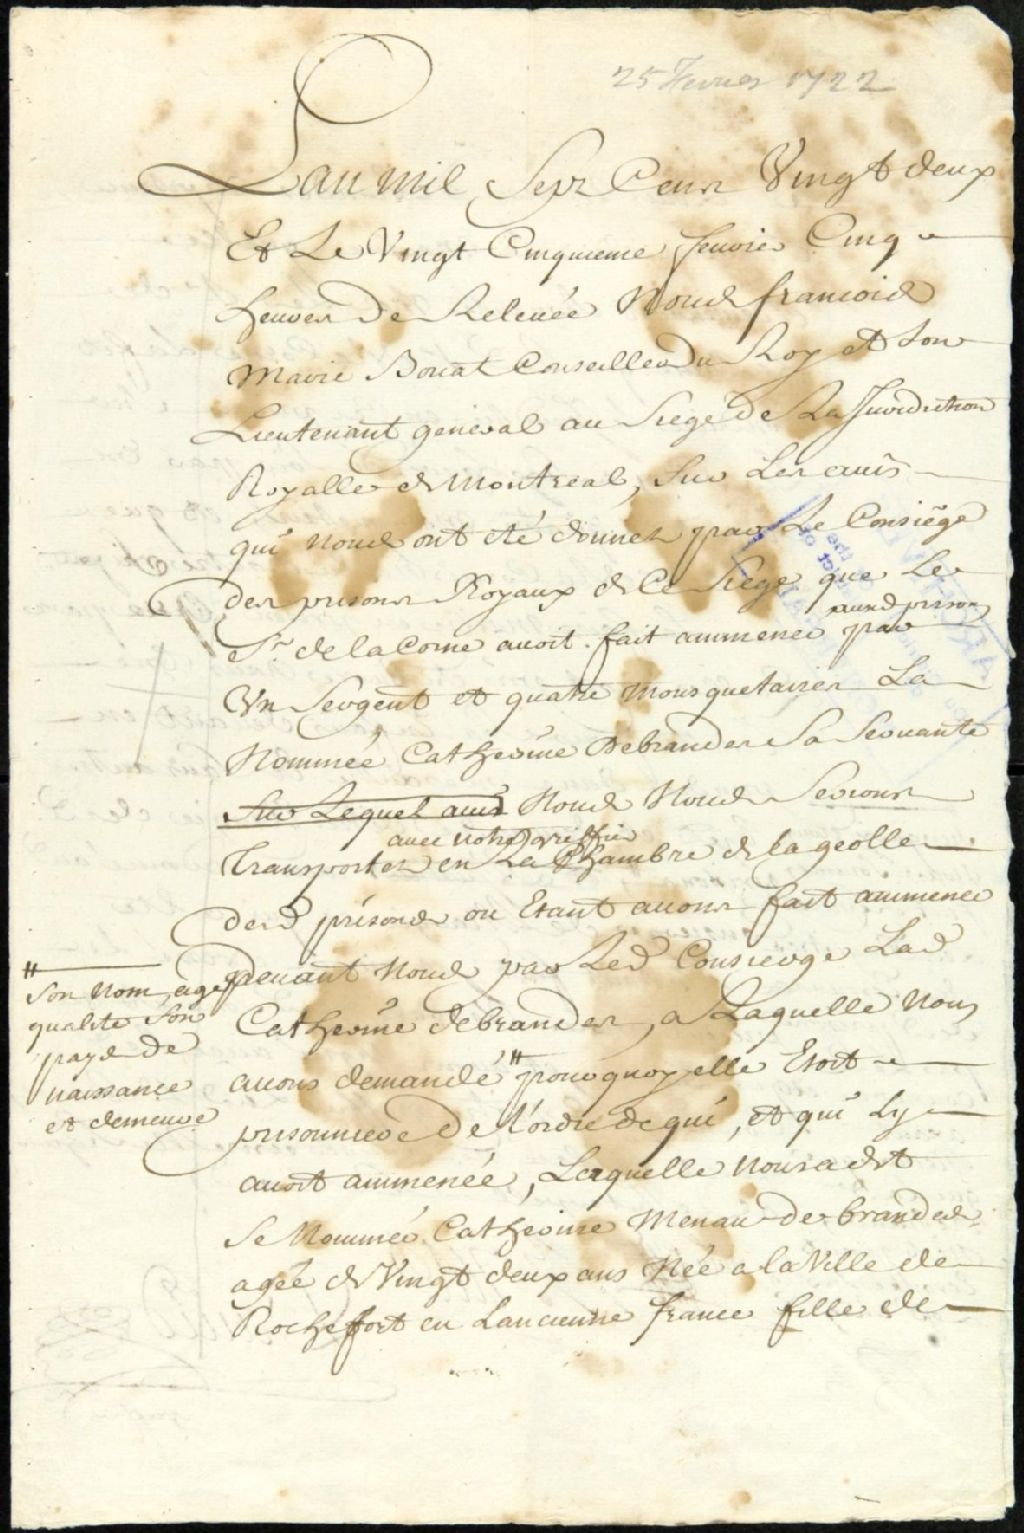 25 Fevrier 1722
Lan mil Sept Cent Vingt deux
Et Le Vingt Cinquieme feuvrier Cinq
heures De Releuée Nous francois
Marie Bouat Conseiller Du Roy et Son
Lieutenant general au Siege De La Jurisdiction
Royalle de Montreal, Sur Les auis
qui nous ont eté donnes par Le Consiege
des prisons Royaux de Ce Siege que Le
aux d prisons
Sr. de la Corne auoit fait ammener par
Vn Sergent et quatre Mousquetaires La
Nommée Catherine Debrandes Sa Seruante
Sur Lequel auis Nous Nous Serions
auec notre greffier
Transportes en La Chambre de la geolle
des d prisons ou Etant auons fait ammener
deuant Nous par Led Consierge Lad
Catherine debrandes, a Laquelle Nous
auons demandé # pourquoy elle Etoit
# Son nom, age
qualite Son
pays de
naissance
et demeure
prisonniere De L'ordre de qui, et qui Ly
auoit ammenée, Laquelle nous a dit
Se Nommer Catherine Menau de brandes
agée de Vingt deux ans Née a la Ville de
Rochefort en Lancienne france fille de